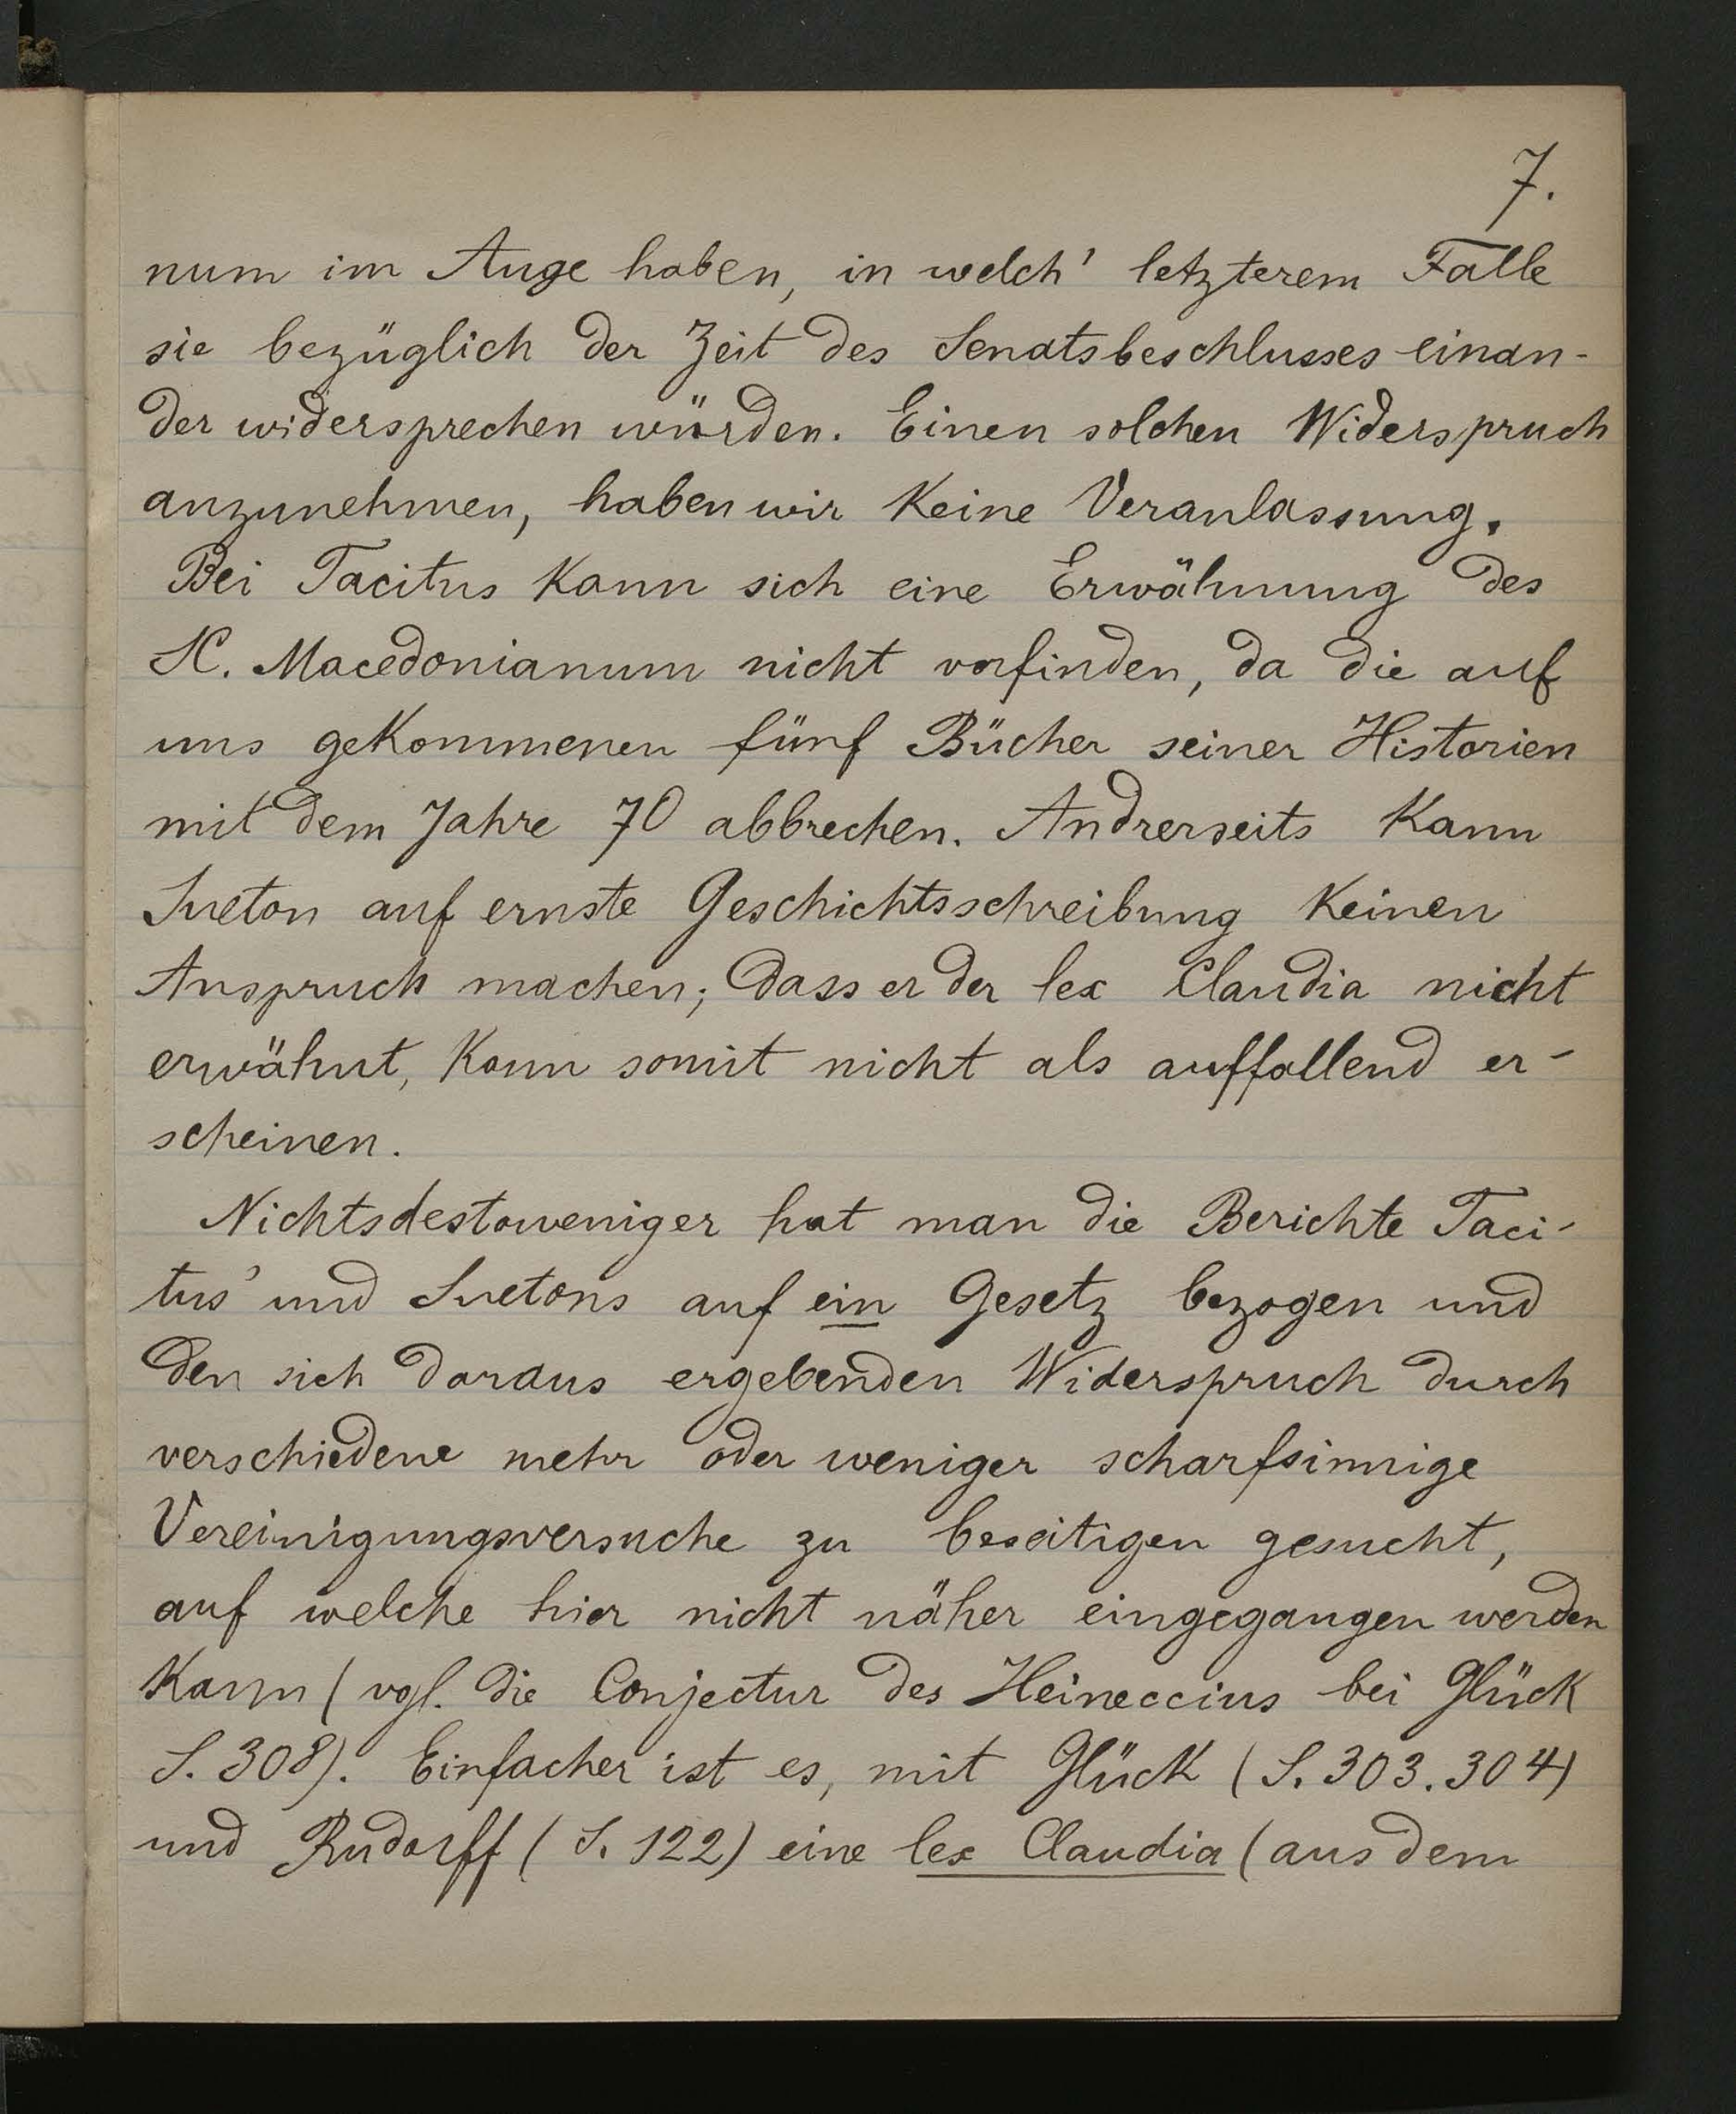 7.
num im Auge haben, in welch' letzterem Falle
sie bezüglich der Zeit des Senatsbeschlusses einan-
der widersprechen würden. Einen solchen Widerspruch
anzunehmen, haben wir keine Veranlassung.
Bei Tacitus kann sich eine Erwähnung des
SC. Macedonianum nicht vorfinden, da die auf
uns gekommenen fünf Bücher seiner Historien
mit dem Jahre 70 abbrechen. Andrerseits kann
Sueton auf ernste Geschichtsschreibung keinen
Anspruch machen; dass er der lex Claudia nicht
erwähnt, kann somit nicht als auffallend er-
scheinen.
Nichtsdestoweniger hat man die Berichte Taci-
tus' und Suetons auf ein Gesetz bezogen und
den sich daraus ergebenden Widerspruch durch
verschiedene mehr oder weniger scharfsinnige
Vereinigungsversuche zu beseitigen gesucht,
auf welche hier nicht näher eingegangen werden
kann (vgl. die Conjectur des Heineccius bei Glück
S. 308). Einfacher ist es, mit Glück (S. 303. 304)
und Rudorff (S. 122) eine lex Claudia (aus dem